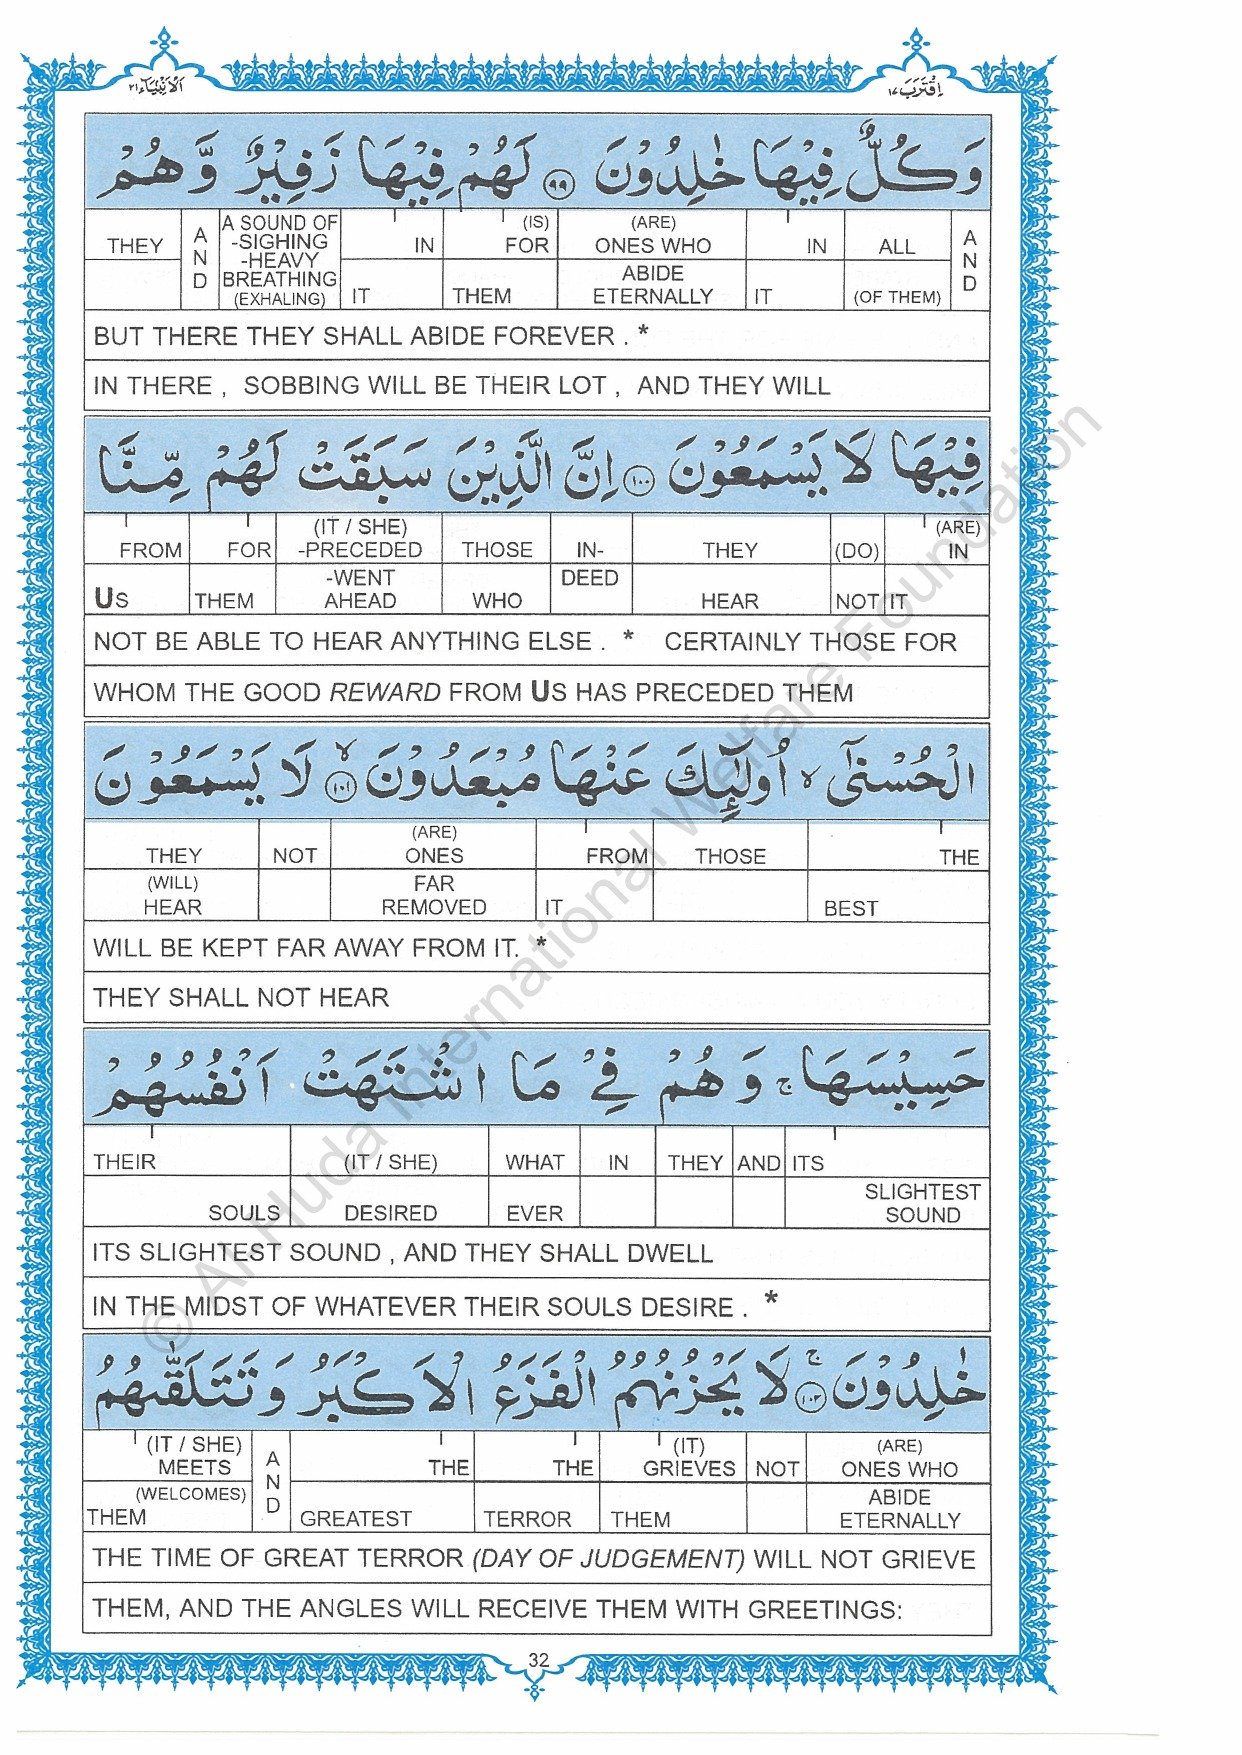 الأنبياء ٢١
اقترب ١٧
وَكُلٌّ فِيهَا خٰلِدُوْنَ ٩٩ لَهُمْ فِيْهَا زَفِيْرٌ وَّهُمْ
THEY AND A SOUND OF -SIGHING -HEAVY BREATHING (EXHALING) IN IT (IS) FOR THEM (ARE) ONES WHO ABIDE ETERNALLY IN IT ALL (OF THEM) AND
BUT THERE THEY SHALL ABIDE FOREVER . *
IN THERE , SOBBING WILL BE THEIR LOT , AND THEY WILL
فِيْهَا لَا يَسْمَعُوْنَ ١٠٠ اِنَّ الَّذِيْنَ سَبَقَتْ لَهُمْ مِّنَّا
FROM US FOR THEM (IT / SHE) -PRECEDED -WENT AHEAD THOSE WHO IN- DEED THEY HEAR (DO) NOT (ARE) IN IT
NOT BE ABLE TO HEAR ANYTHING ELSE . * CERTAINLY THOSE FOR
WHOM THE GOOD REWARD FROM US HAS PRECEDED THEM
الْحُسْنٰٓى ۙ اُولٰٓئِكَ عَنْهَا مُبْعَدُوْنَ ١٠١ ۙ لَا يَسْمَعُوْنَ
THEY (WILL) HEAR NOT (ARE) ONES FAR REMOVED FROM IT THOSE THE BEST
WILL BE KEPT FAR AWAY FROM IT. *
THEY SHALL NOT HEAR
حَسِيْسَهَا ۚ وَهُمْ فِيْ مَا اشْتَهَتْ اَنْفُسُهُمْ
THEIR SOULS (IT / SHE) DESIRED WHAT EVER IN THEY AND ITS SLIGHTEST SOUND
ITS SLIGHTEST SOUND , AND THEY SHALL DWELL
IN THE MIDST OF WHATEVER THEIR SOULS DESIRE . *
خٰلِدُوْنَ ١٠٢ ۚ لَا يَحْزُنُهُمُ الْفَزَعُ الْاَكْبَرُ وَتَتَلَقّٰىهُمُ
(IT / SHE) MEETS (WELCOMES) THEM AND THE GREATEST THE TERROR (IT) GRIEVES THEM NOT (ARE) ONES WHO ABIDE ETERNALLY
THE TIME OF GREAT TERROR (DAY OF JUDGEMENT) WILL NOT GRIEVE
THEM, AND THE ANGLES WILL RECEIVE THEM WITH GREETINGS:
32
© Al Huda International Welfare Foundation